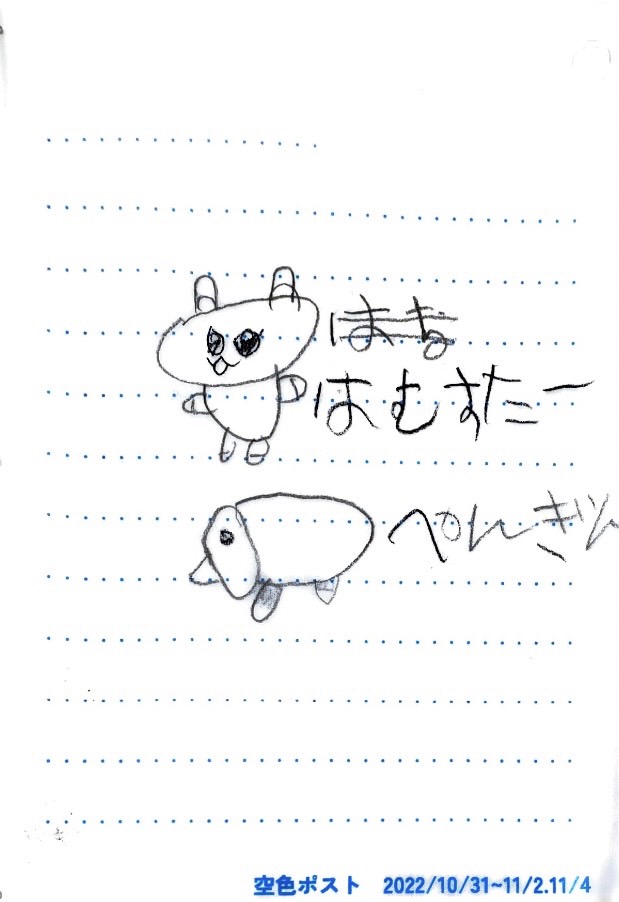 はむすたー
ぺんぎん
空色ポスト 2022/10/31~11/2.11/4